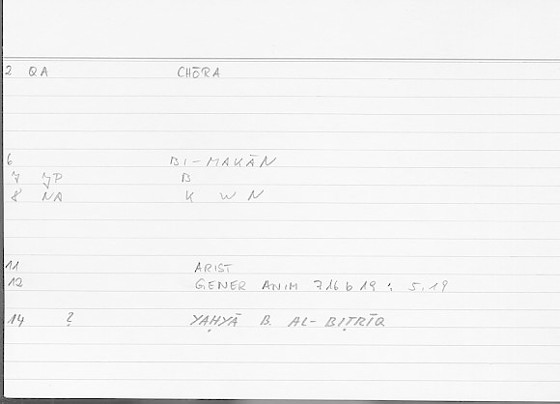 2 QA CHŌRA
6 BI-MAKĀN
7 JP B
8 NA K W N
11 ARIST
12 GENER ANIM 716 b 19 : 5.19
14 ? YAḤYĀ B. AL-BIṬRĪQ